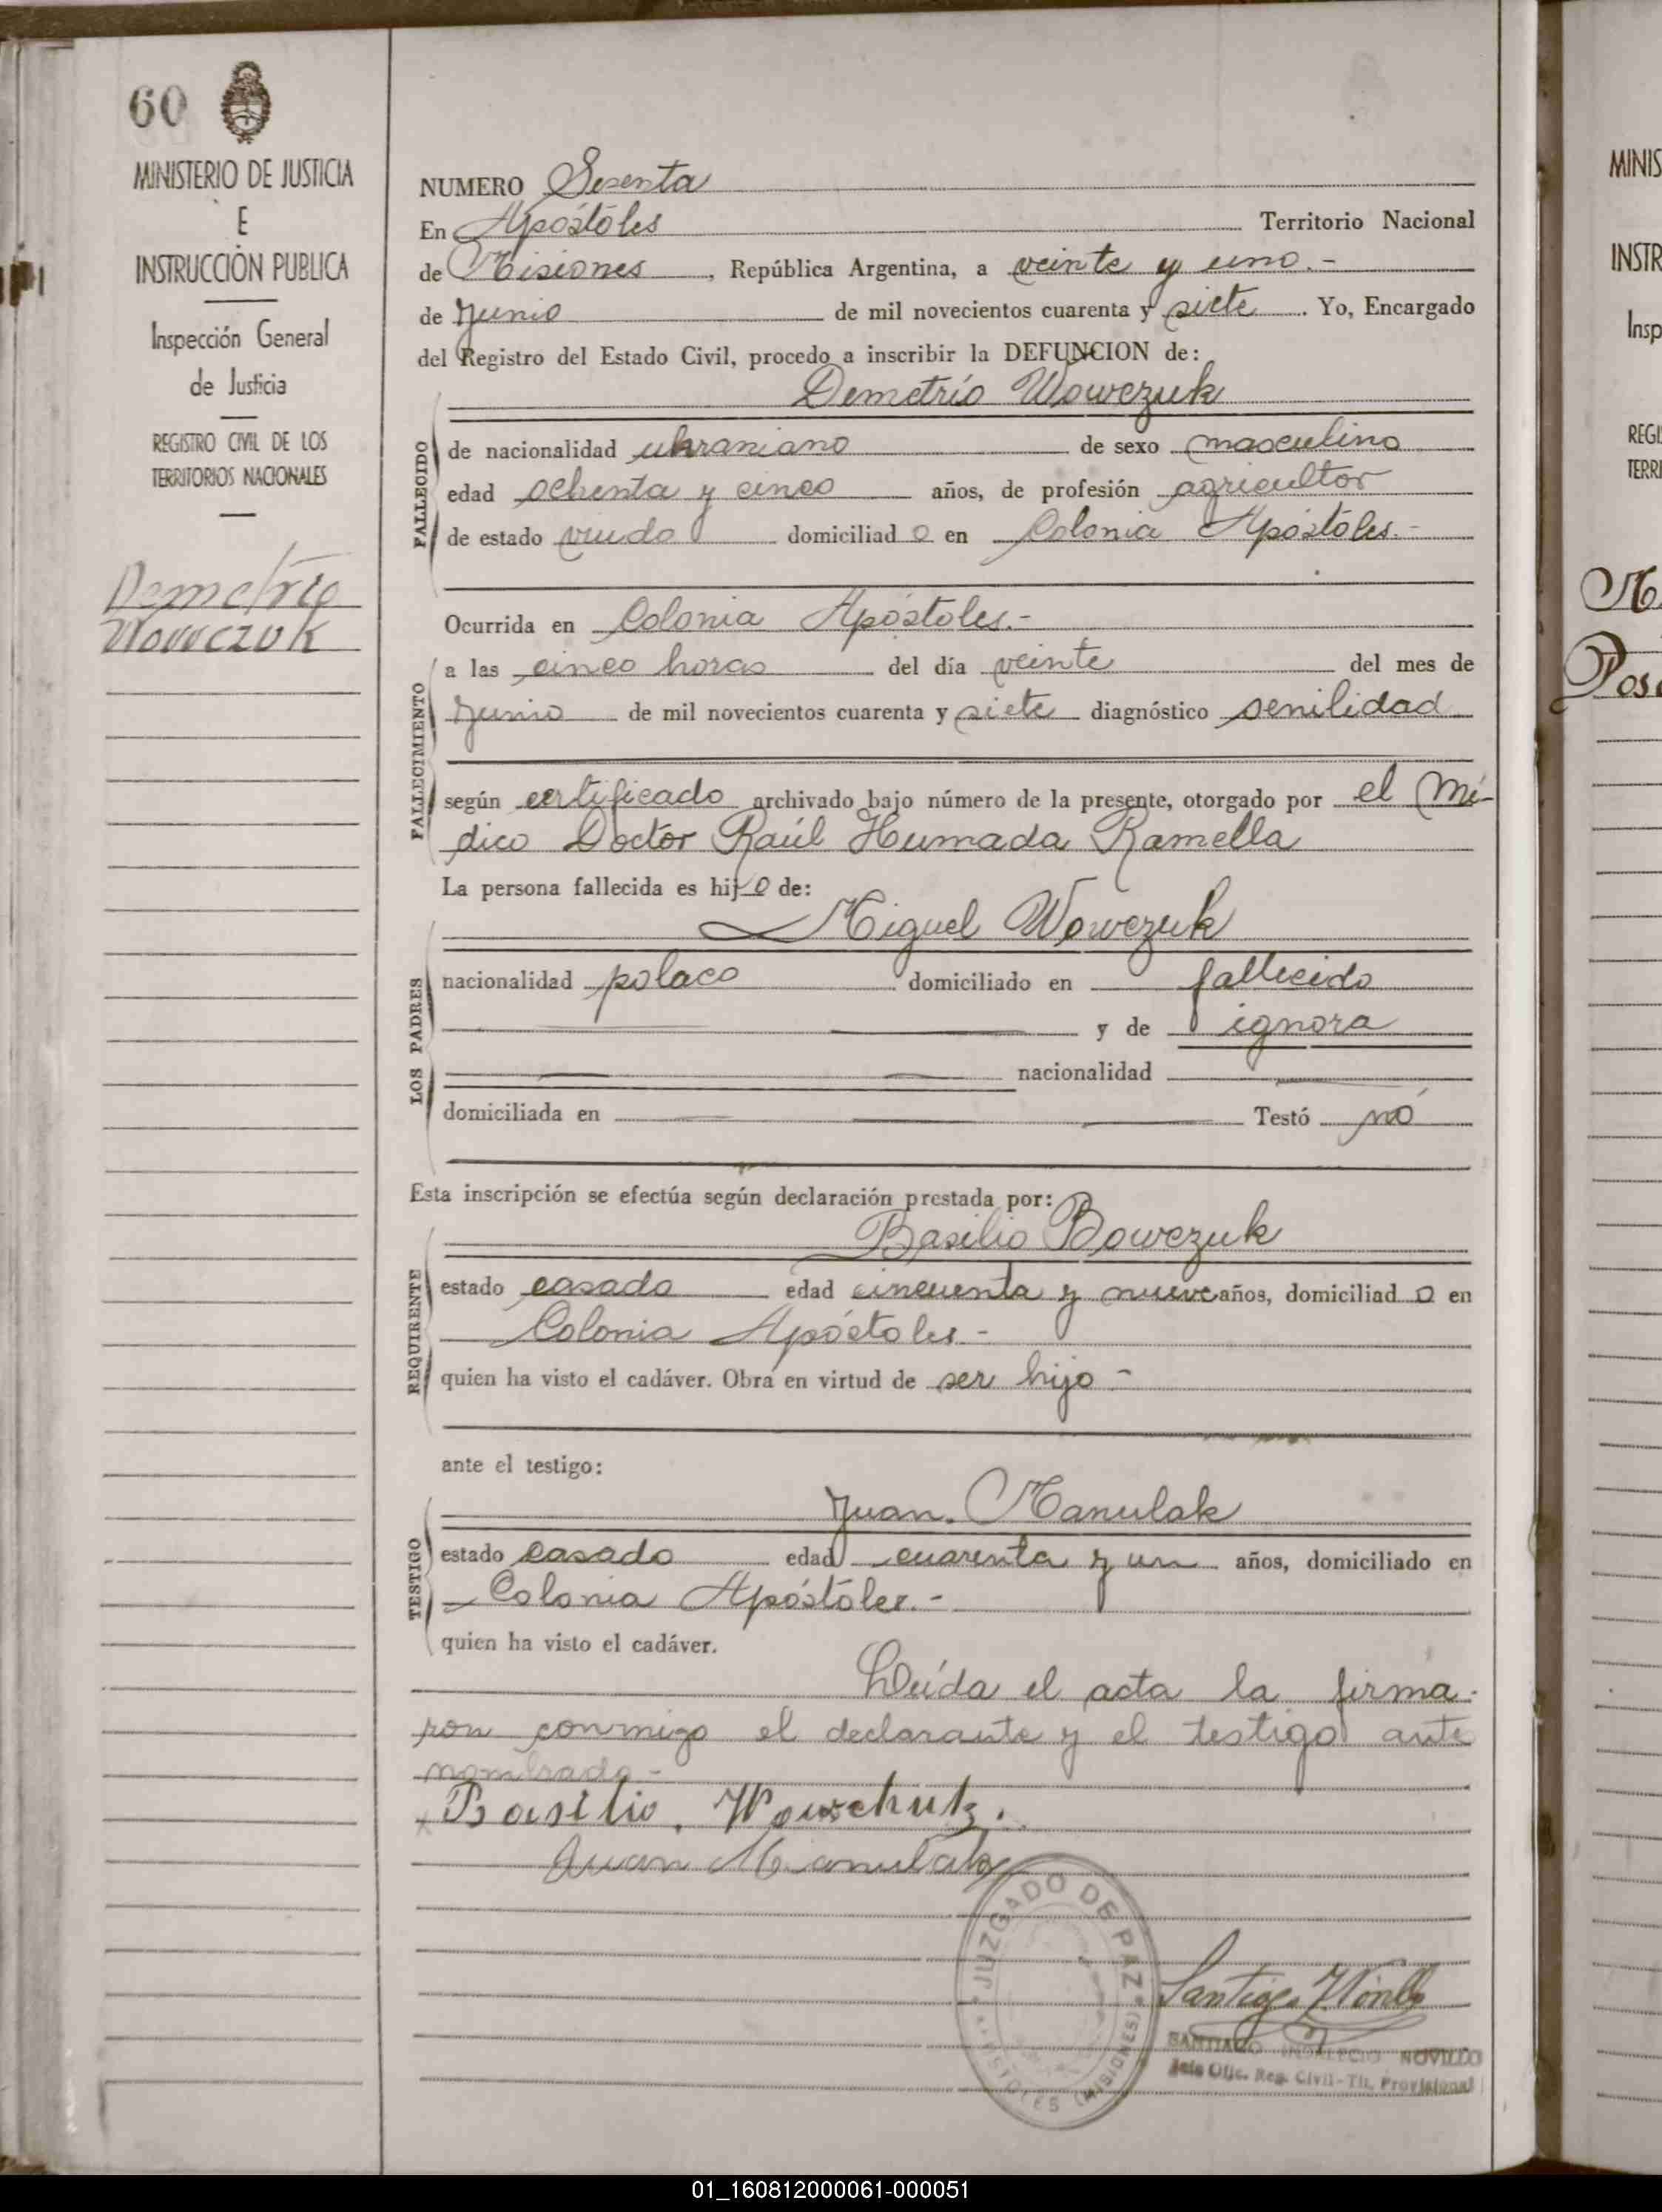 60
MINISTERIO DE JUSTICIA
E
INSTRUCCIÓN PUBLICA
Inspección General
de Justicia
REGISTRO CIVIL DE LOS
TERRITORIOS NACIONALES
Demetrio
Wowczuk
NUMERO Sesenta
En Apóstoles Territorio Nacional
de Misiones, República Argentina, a veinte y uno.-
de Junio de mil novecientos cuarenta y siete. Yo, Encargado
del Registro del Estado Civil, procedo a inscribir la DEFUNCION de:
Demetrio Wowczuk
FALLECIDO
de nacionalidad ukraniano de sexo masculino
edad ochenta y cinco años, de profesión agricultor
de estado viudo domiciliado en Colonia Apóstoles.-
Ocurrida en Colonia Apóstoles.-
FALLECIMIENTO
a las cinco horas del día veinte del mes de
Junio de mil novecientos cuarenta y siete diagnóstico senilidad
según certificado archivado bajo número de la presente, otorgado por el Mé-
dico Doctor Raúl Humada Ramella
La persona fallecida es hijo de:
Miguel Wowczuk
LOS PADRES
nacionalidad polaco domiciliado en fallecido
y de ignora
nacionalidad
domiciliada en Testó nó
Esta inscripción se efectúa según declaración prestada por:
Basilio Bowczuk
REQUIRENTE
estado casado edad cincuenta y nueve años, domiciliado en
Colonia Apóstoles -
quien ha visto el cadáver. Obra en virtud de ser hijo -
ante el testigo:
Juan. Manulak
TESTIGO
estado casado edad cuarenta y un años, domiciliado en
Colonia Apóstoles.-
quien ha visto el cadáver.
Leída el acta la firma-
ron conmigo el declarante y el testigo ante
nombrado.-
Basilio. Wowchuk.
Juan Manulak
JUZGADO DE PAZ
APOSTOLES (MISIONES)
Santiago I. Novillo
SANTIAGO INDALECIO NOVILLO
Jefe Ofic. Reg. Civil-Tit. Provisional
MINIS
INSTR
Insp
REGI
TERRI
Pos
01_160812000061-000051